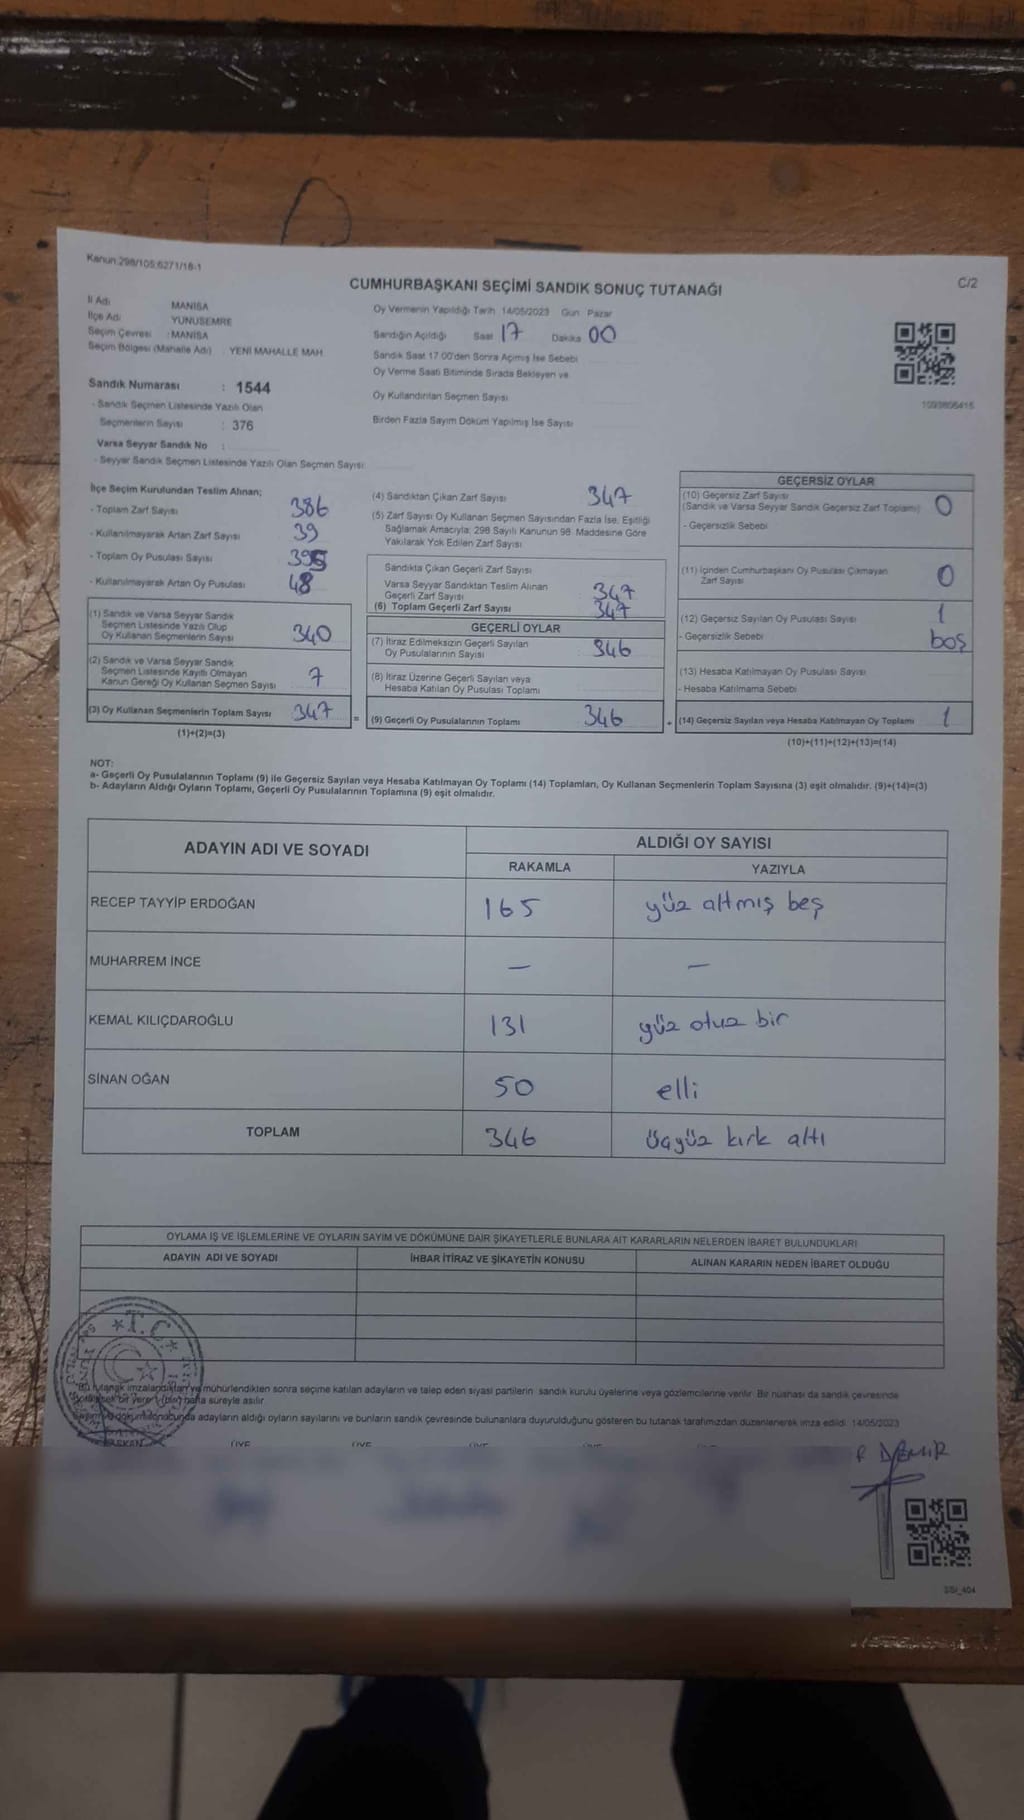 Kanun:298/105;6271/18-1
C/2
CUMHURBAŞKANI SEÇİMİ SANDIK SONUÇ TUTANAĞI
İl Adı MANİSA
İlçe Adı YUNUSEMRE
Seçim Çevresi : MANİSA
Seçim Bölgesi (Mahalle Adı) : YENİ MAHALLE MAH
Sandık Numarası : 1544
- Sandık Seçmen Listesinde Yazılı Olan
Seçmenlerin Sayısı : 376
Varsa Seyyar Sandık No :
- Seyyar Sandık Seçmen Listesinde Yazılı Olan Seçmen Sayısı:
Oy Vermenin Yapıldığı Tarih 14/05/2023 Gün Pazar
Sandığın Açıldığı Saat 17 Dakika 00
Sandık Saat 17.00'den Sonra Açımış İse Sebebi
Oy Verme Saati Bitiminde Sırada Bekleyen ve
Oy Kullandırılan Seçmen Sayısı
Birden Fazla Sayım Döküm Yapılmış İse Sayısı
İlçe Seçim Kurulundan Teslim Alınan;
- Toplam Zarf Sayısı 386
- Kullanılmayarak Artan Zarf Sayısı 39
- Toplam Oy Pusulası Sayısı 395
- Kullanılmayarak Artan Oy Pusulası 48
(1) Sandık ve Varsa Seyyar Sandık
Seçmen Listesinde Yazılı Olup
Oy Kullanan Seçmenlerin Sayısı 340
(2) Sandık ve Varsa Seyyar Sandık
Seçmen Listesinde Kayıtlı Olmayan
Kanun Gereği Oy Kullanan Seçmen Sayısı 7
(3) Oy Kullanan Seçmenlerin Toplam Sayısı 347
(1)+(2)=(3)
(4) Sandıktan Çıkan Zarf Sayısı 347
(5) Zarf Sayısı Oy Kullanan Seçmen Sayısından Fazla İse, Eşitliği
Sağlamak Amacıyla; 298 Sayılı Kanunun 98. Maddesine Göre
Yakılarak Yok Edilen Zarf Sayısı
Sandıkta Çıkan Geçerli Zarf Sayısı
Varsa Seyyar Sandıktan Teslim Alınan
Geçerli Zarf Sayısı 347
(6) Toplam Geçerli Zarf Sayısı 347
GEÇERLİ OYLAR
(7) İtiraz Edilmeksizin Geçerli Sayılan
Oy Pusulalarının Sayısı 346
(8) İtiraz Üzerine Geçerli Sayılan veya
Hesaba Katılan Oy Pusulası Toplamı
= (9) Geçerli Oy Pusulalarının Toplamı 346
1093806415
GEÇERSİZ OYLAR
(10) Geçersiz Zarf Sayısı
(Sandık ve Varsa Seyyar Sandık Geçersiz Zarf Toplamı) 0
- Geçersizlik Sebebi
(11) İçinden Cumhurbaşkanı Oy Pusulası Çıkmayan
Zarf Sayısı 0
(12) Geçersiz Sayılan Oy Pusulası Sayısı 1
- Geçersizlik Sebebi boş
(13) Hesaba Katılmayan Oy Pusulası Sayısı
- Hesaba Katılmama Sebebi
+ (14) Geçersiz Sayılan veya Hesaba Katılmayan Oy Toplamı 1
(10)+(11)+(12)+(13)=(14)
NOT:
a- Geçerli Oy Pusulalarının Toplamı (9) ile Geçersiz Sayılan veya Hesaba Katılmayan Oy Toplamı (14) Toplamları, Oy Kullanan Seçmenlerin Toplam Sayısına (3) eşit olmalıdır. (9)+(14)=(3)
b- Adayların Aldığı Oyların Toplamı, Geçerli Oy Pusulalarının Toplamına (9) eşit olmalıdır.
ADAYIN ADI VE SOYADI ALDIĞI OY SAYISI
RAKAMLA YAZIYLA
RECEP TAYYİP ERDOĞAN 165 yüz altmış beş
MUHARREM İNCE — —
KEMAL KILIÇDAROĞLU 131 yüz otuz bir
SİNAN OĞAN 50 elli
TOPLAM 346 üçyüz kırk altı
OYLAMA İŞ VE İŞLEMLERİNE VE OYLARIN SAYIM VE DÖKÜMÜNE DAİR ŞİKAYETLERLE BUNLARA AİT KARARLARIN NELERDEN İBARET BULUNDUKLARI
ADAYIN ADI VE SOYADI İHBAR İTİRAZ VE ŞİKAYETİN KONUSU ALINAN KARARIN NEDEN İBARET OLDUĞU
T.C.
Bu tutanak imzalandıktan ve mühürlendikten sonra seçime katılan adayların ve talep eden siyasi partilerin sandık kurulu üyelerine veya gözlemcilerine verilir. Bir nüshası da sandık çevresinde
bir yere 1 (bir) hafta süreyle asılır.
adayların aldığı oyların sayılarını ve bunların sandık çevresinde bulunanlara duyurulduğunu gösteren bu tutanak tarafımızdan düzenlenerek imza edildi. 14/05/2023
BAŞKAN ÜYE ÜYE ÜYE
DEMİR
SSİ_404